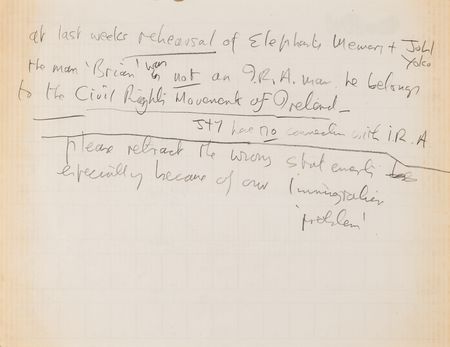 at last weeks rehearsal of Elephants Memory + John Yoko
the man 'Brian' was is not an I.R.A. man he belongs
to the Civil Rights Movement of Ireland
J+Y has no connection with I.R.A
please retract the wrong statements
especially because of our immigration
'problem'.